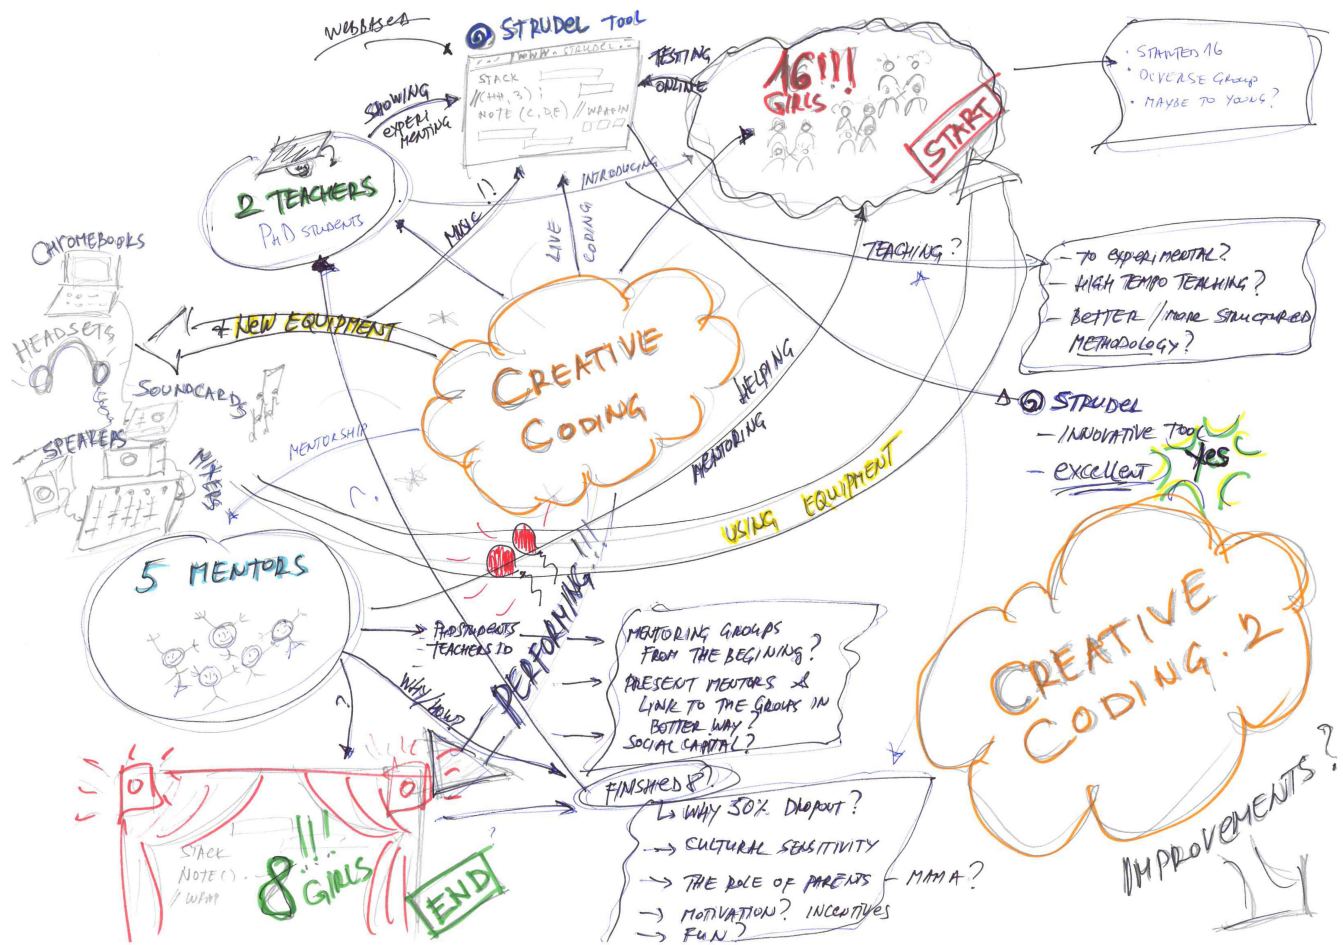 WEBBASED
STRUDEL TOOL
WWW. STRUDEL
STACK
//(HH, 3) ;
NOTE (C, D, E) // WRAP IN
TESTING
ONLINE
16!!!
GIRLS
START
· STARTED 16
· DIVERSE GROUP
· MAYBE TO YOUNG?
SHOWING
EXPERI
MENTING
2 TEACHERS
PHD STUDENTS
MUSIC!?
LIVE
CODING
INTRODUCING
TEACHING?
- TO EXPERIMENTAL?
- HIGH TEMPO TEACHING?
- BETTER / MORE STRUCTURED
METHODOLOGY?
CHROMEBOOKS
HEADSETS
SOUNDCARDS
SPEAKERS
MIXERS
+ NEW EQUIPMENT
CREATIVE
CODING
HELPING
MENTORING
USING EQUIPMENT
STRUDEL
- INNOVATIVE TOOL
- EXCELLENT
YES
MENTORSHIP
?
5 MENTORS
- PHD STUDENTS
- TEACHERS ID
WHY/HOW?
?
PERFORMING!!!
MENTORING GROUPS
FROM THE BEGINING?
PRESENT MENTORS &
LINK TO THE GROUPS IN
BETTER WAY?
SOCIAL CAPITAL?
CREATIVE
CODING. 2
IMPROVEMENTS?
FINISHED 8?
WHY 50% DROPOUT?
CULTURAL SENSITIVITY
THE ROLE OF PARENTS - MAMA?
MOTIVATION? INCENTIVES
FUN?
STACK
NOTE().
/ WRAP
!!!
8 GIRLS
END